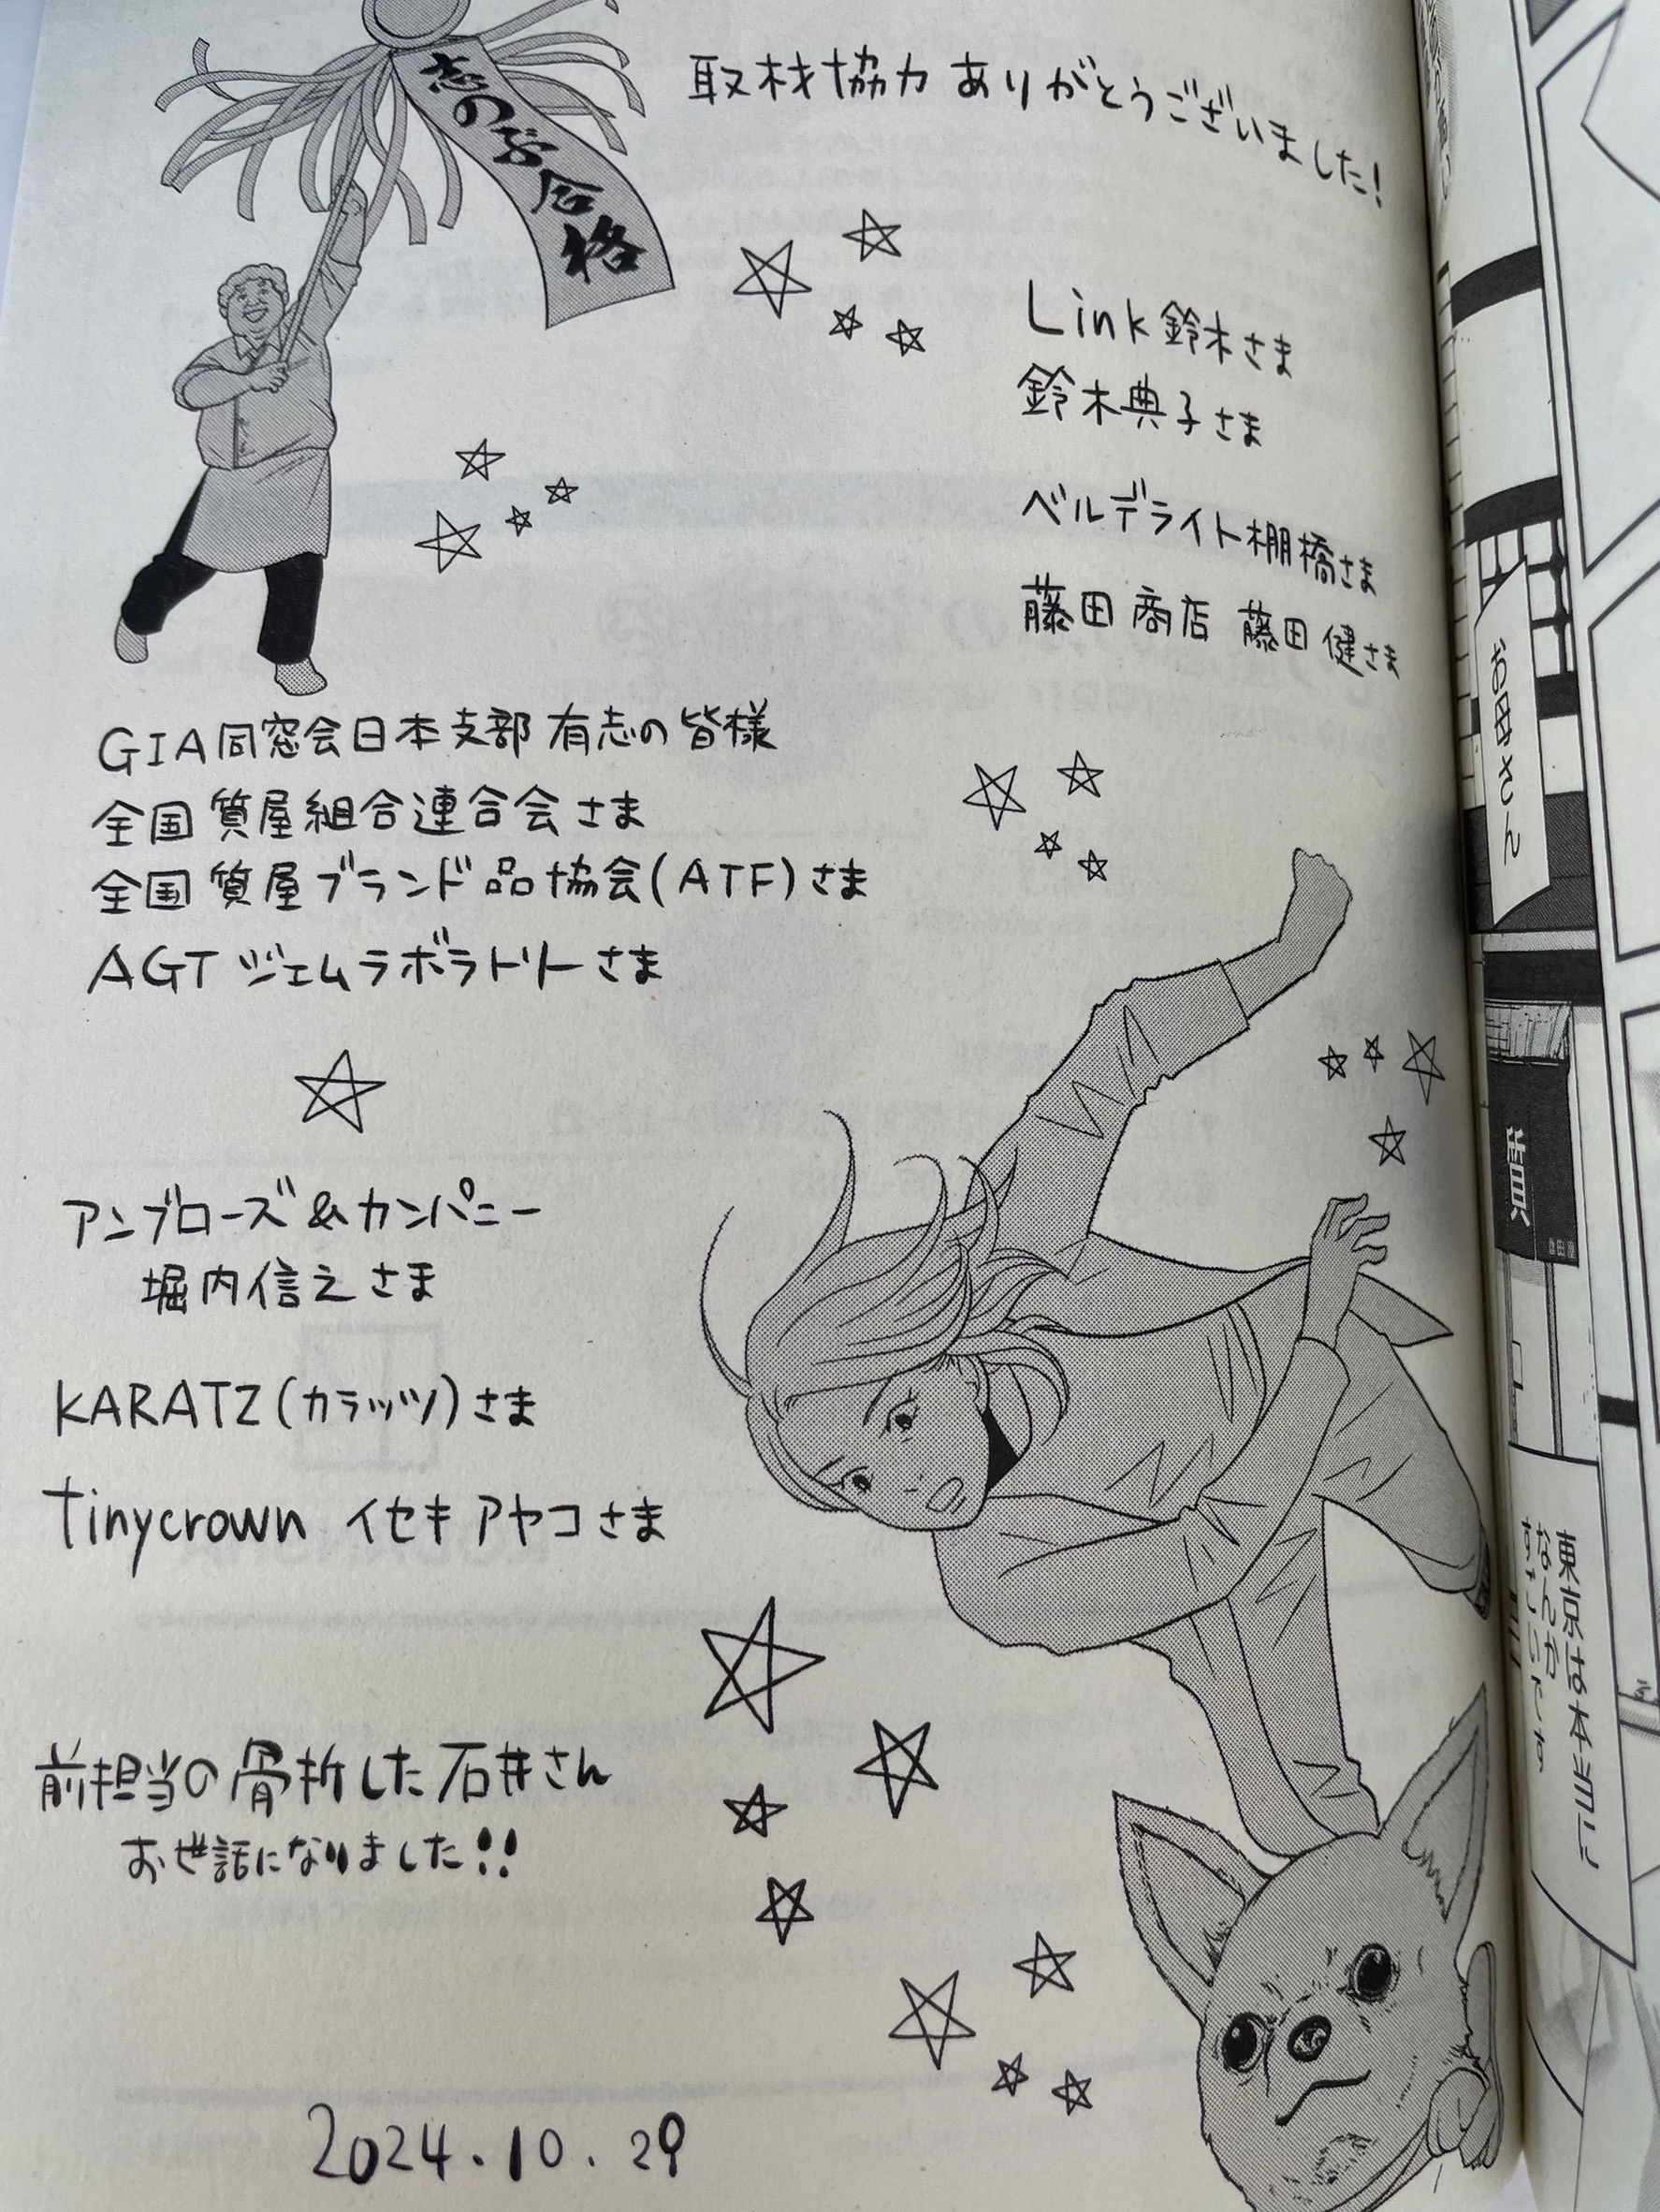 志のぶ合格
取材協力 ありがとうございました!
Link 鈴木さま
鈴木典子さま
ベルデライト棚橋さま
藤田商店 藤田健さま
GIA同窓会日本支部 有志の皆様
全国質屋組合連合会さま
全国質屋ブランド品協会(ATF)さま
AGTジェムラボラトリーさま
アンブローズ&カンパニー
堀内信之さま
KARATZ(カラッツ)さま
tinycrown イセキアヤコさま
前担当の骨折した石井さん
お世話になりました!!
2024.10.29
お母さん
質
東京は本当に
なんか
すごいとこね